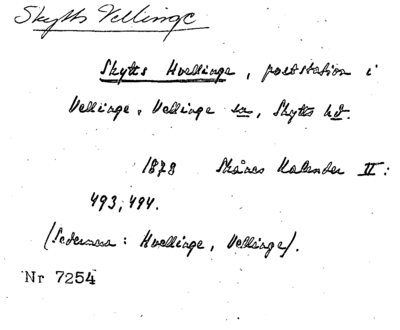 Skytts Vellinge
Skytts Hvellinge, poststation i
Vellinge, Vellinge sn, Skytts hd.
1878 Skånes Kalender II:
493, 494.
(Sedermera: Hvellinge, Vellinge).
Nr 7254